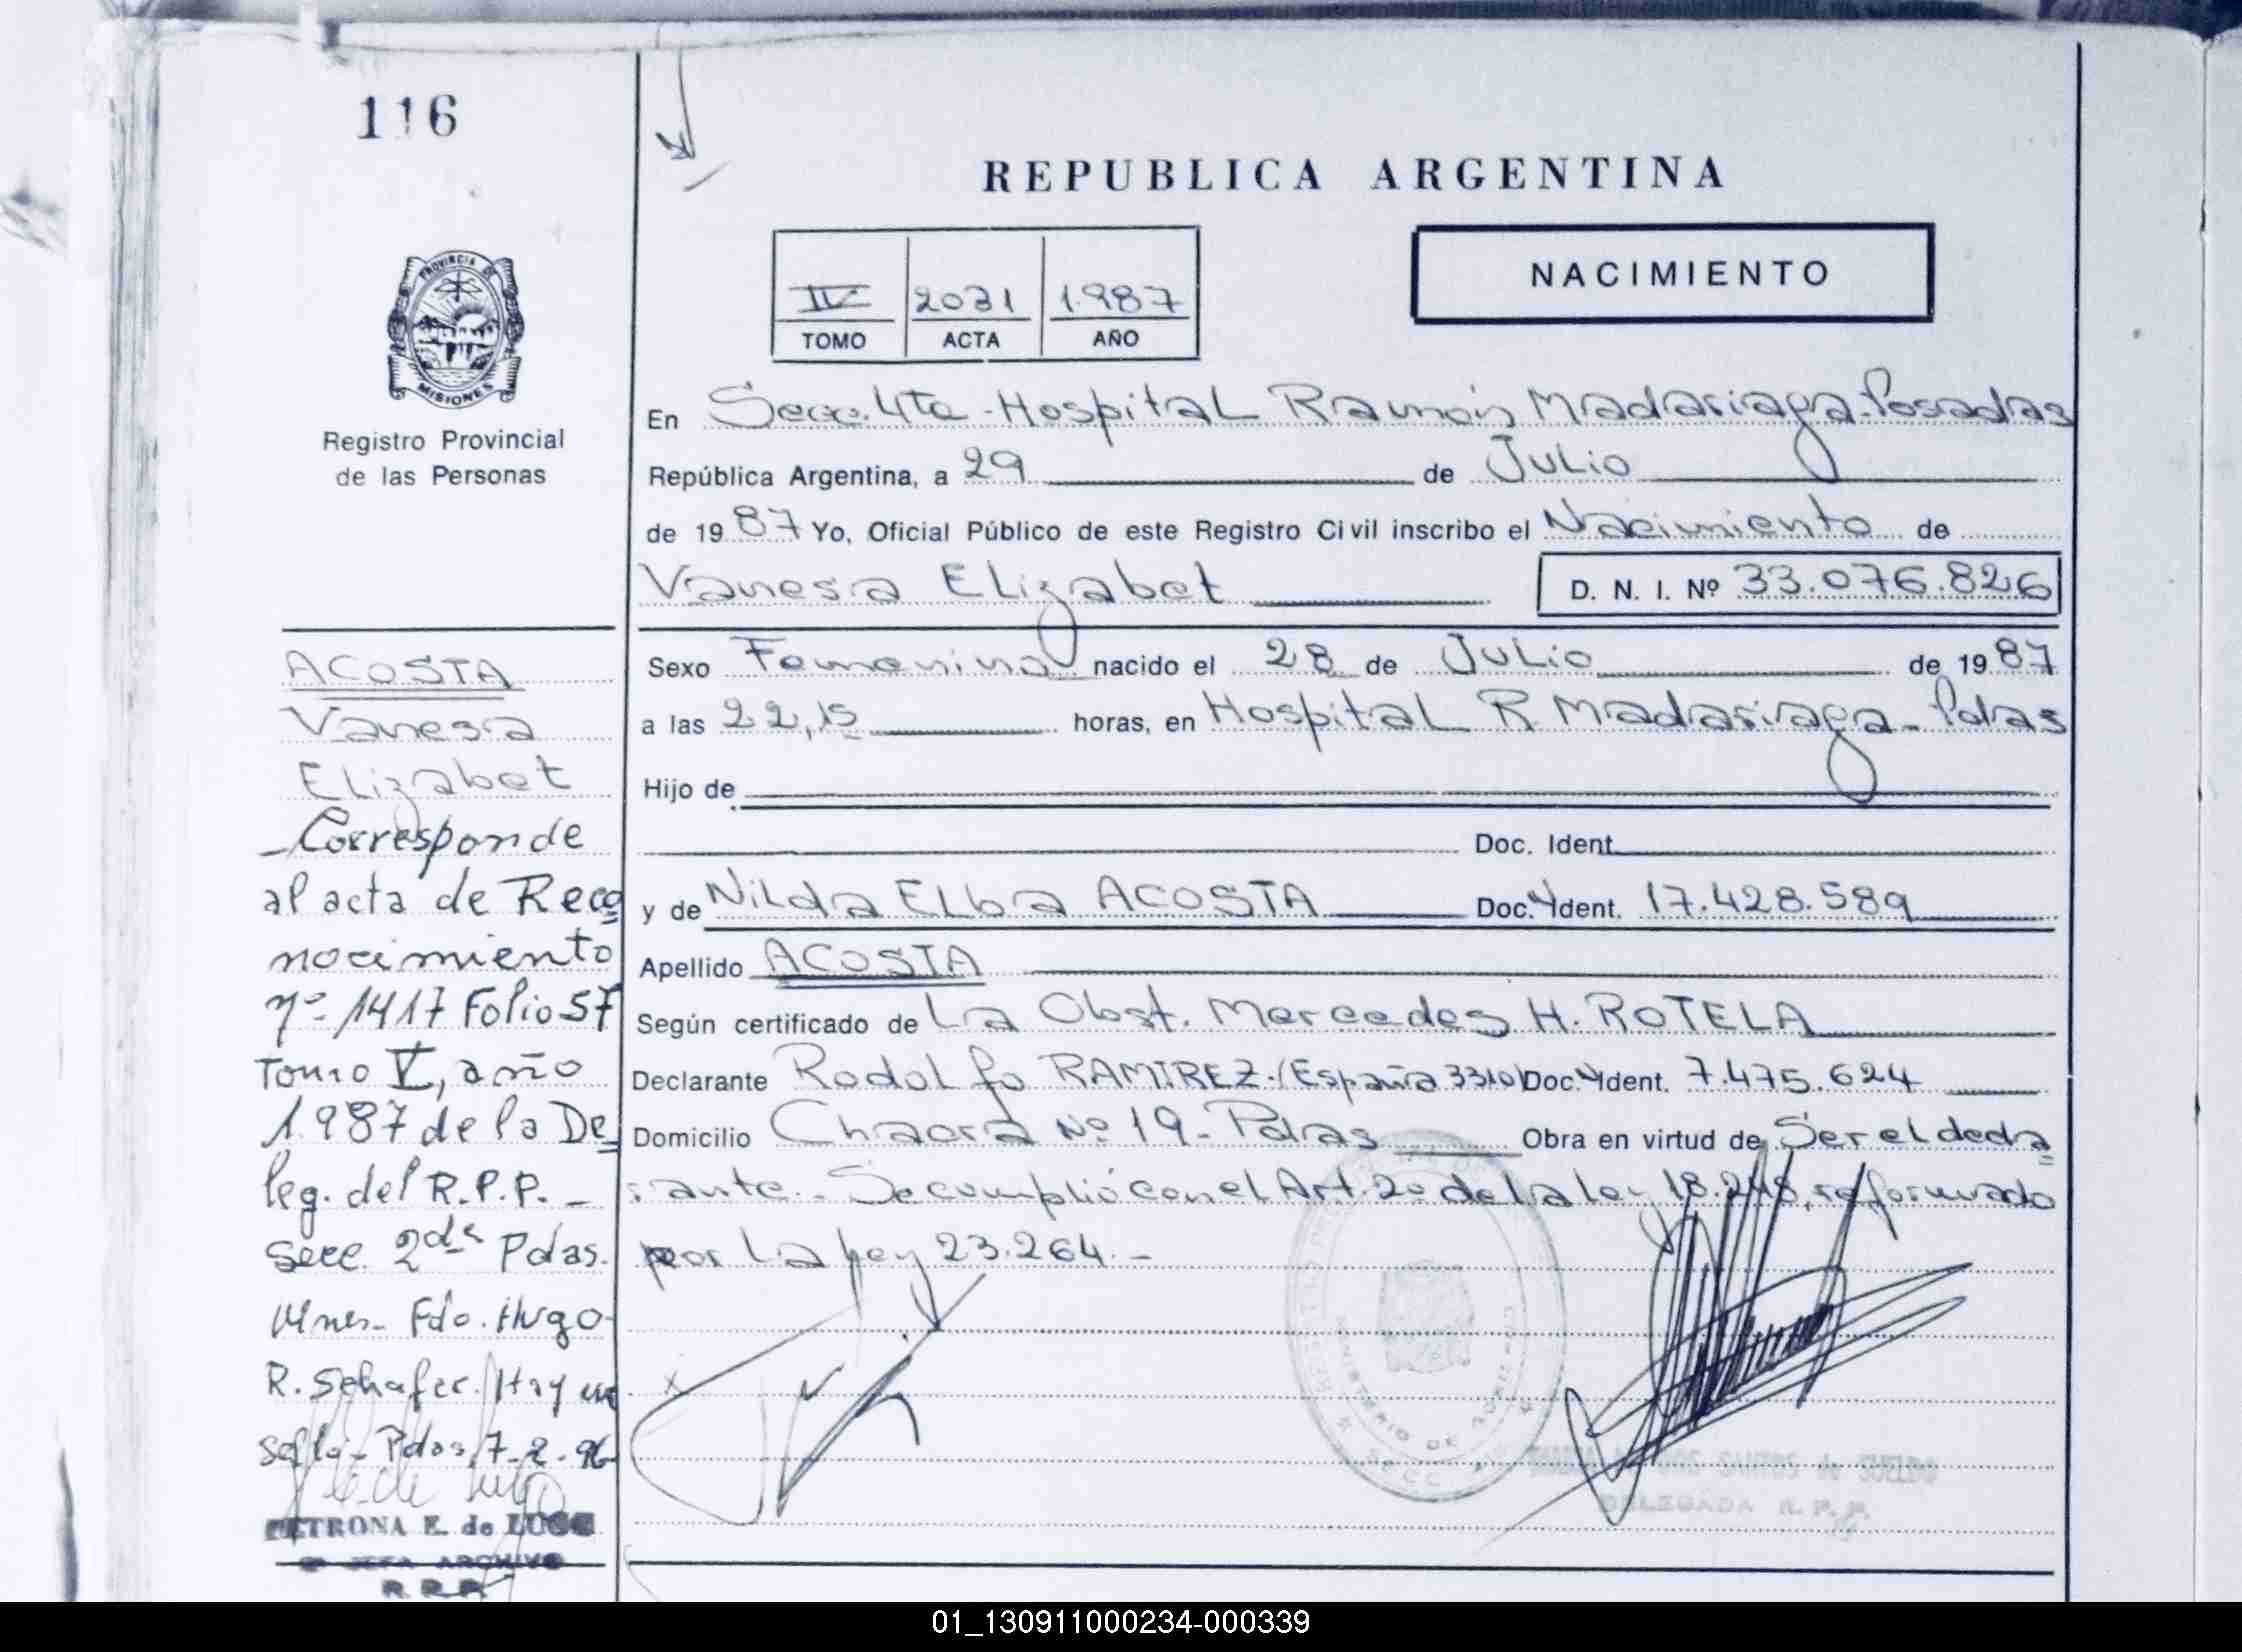 116
REPUBLICA ARGENTINA
PROVINCIA DE
MISIONES
Registro Provincial
de las Personas
IV 2031 1.987
TOMO ACTA AÑO
NACIMIENTO
En Secc. 4ta - Hospital Ramón Madariaga - Posadas
República Argentina, a 29 de Julio
de 1987 Yo, Oficial Público de este Registro Civil inscribo el Nacimiento de
Vanesa Elizabet D. N. I. Nº 33.076.826
Sexo Femenino nacido el 28 de Julio de 1987
a las 22,15 horas, en Hospital R Madariaga - Pdas
Hijo de
Doc. Ident.
y de Nilda Elba ACOSTA Doc. Ident. 17.428.589
Apellido ACOSTA
Según certificado de La Obst. Mercedes H. ROTELA
Declarante Rodolfo RAMIREZ. (España 3310) Doc. Ident. 7.475.624
Domicilio Chacra Nº 19 - Pdas Obra en virtud de Ser el decla
rante. - Se cumplió con el Art. 2º de la ley 18.248, reformado
por la ley 23.264. -
ACOSTA
Vanesa
Elizabet
- Corresponde
al acta de Reco
nocimiento
nº 1417 Folio 57
Tomo V, año
1.987 de la De
leg. del R.P.P. -
Secc. 2da Pdas.
Mnes - Fdo. Hugo
R. Schafer. / Hay un
sello - Pdas, 7-2-96
PETRONA E. de LUGO
JEFA ARCHIVO
R. P. P.
MINISTERIO DE
SECC
SANTOS de SUELDO
DELEGADA R. P. P.
01_130911000234-000339